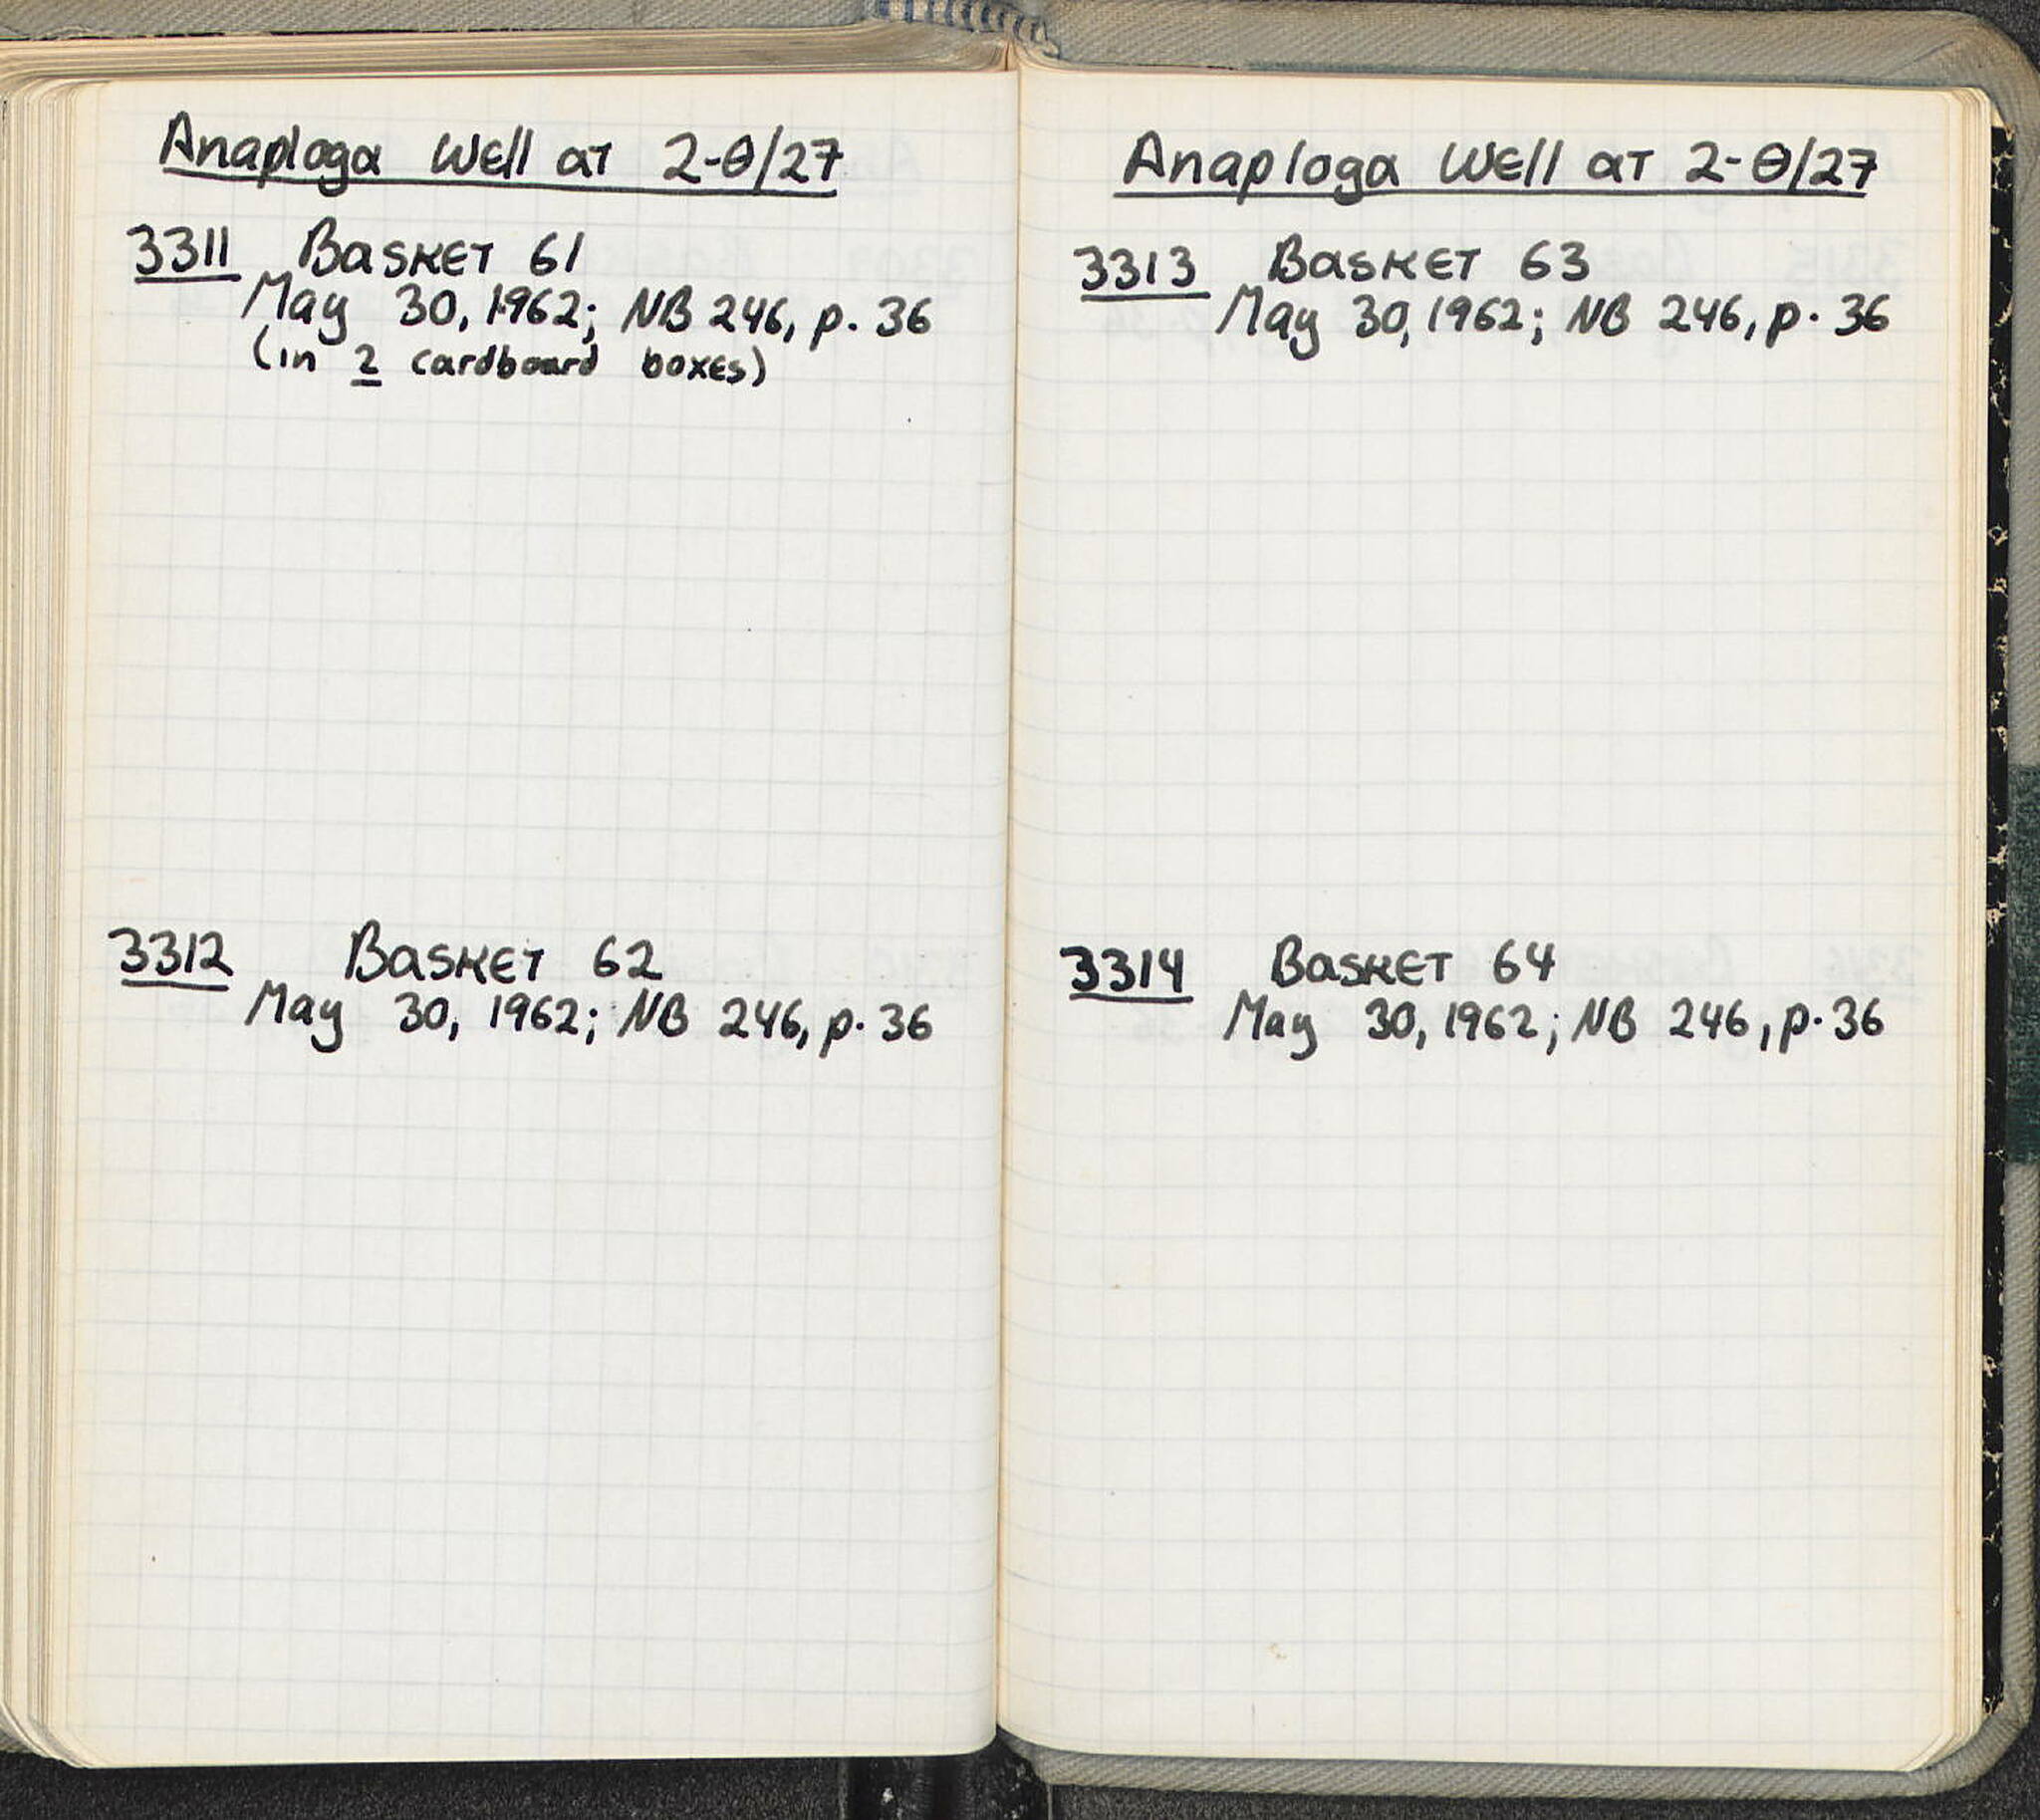 Anaploga Well at 2-θ/27
3311 Basket 61
May 30, 1962; NB 246, p. 36
(in 2 cardboard boxes)
3312 Basket 62
May 30, 1962; NB 246, p. 36
Anaploga Well at 2-θ/27
3313 Basket 63
May 30, 1962; NB 246, p. 36
3314 Basket 64
May 30, 1962; NB 246, p. 36